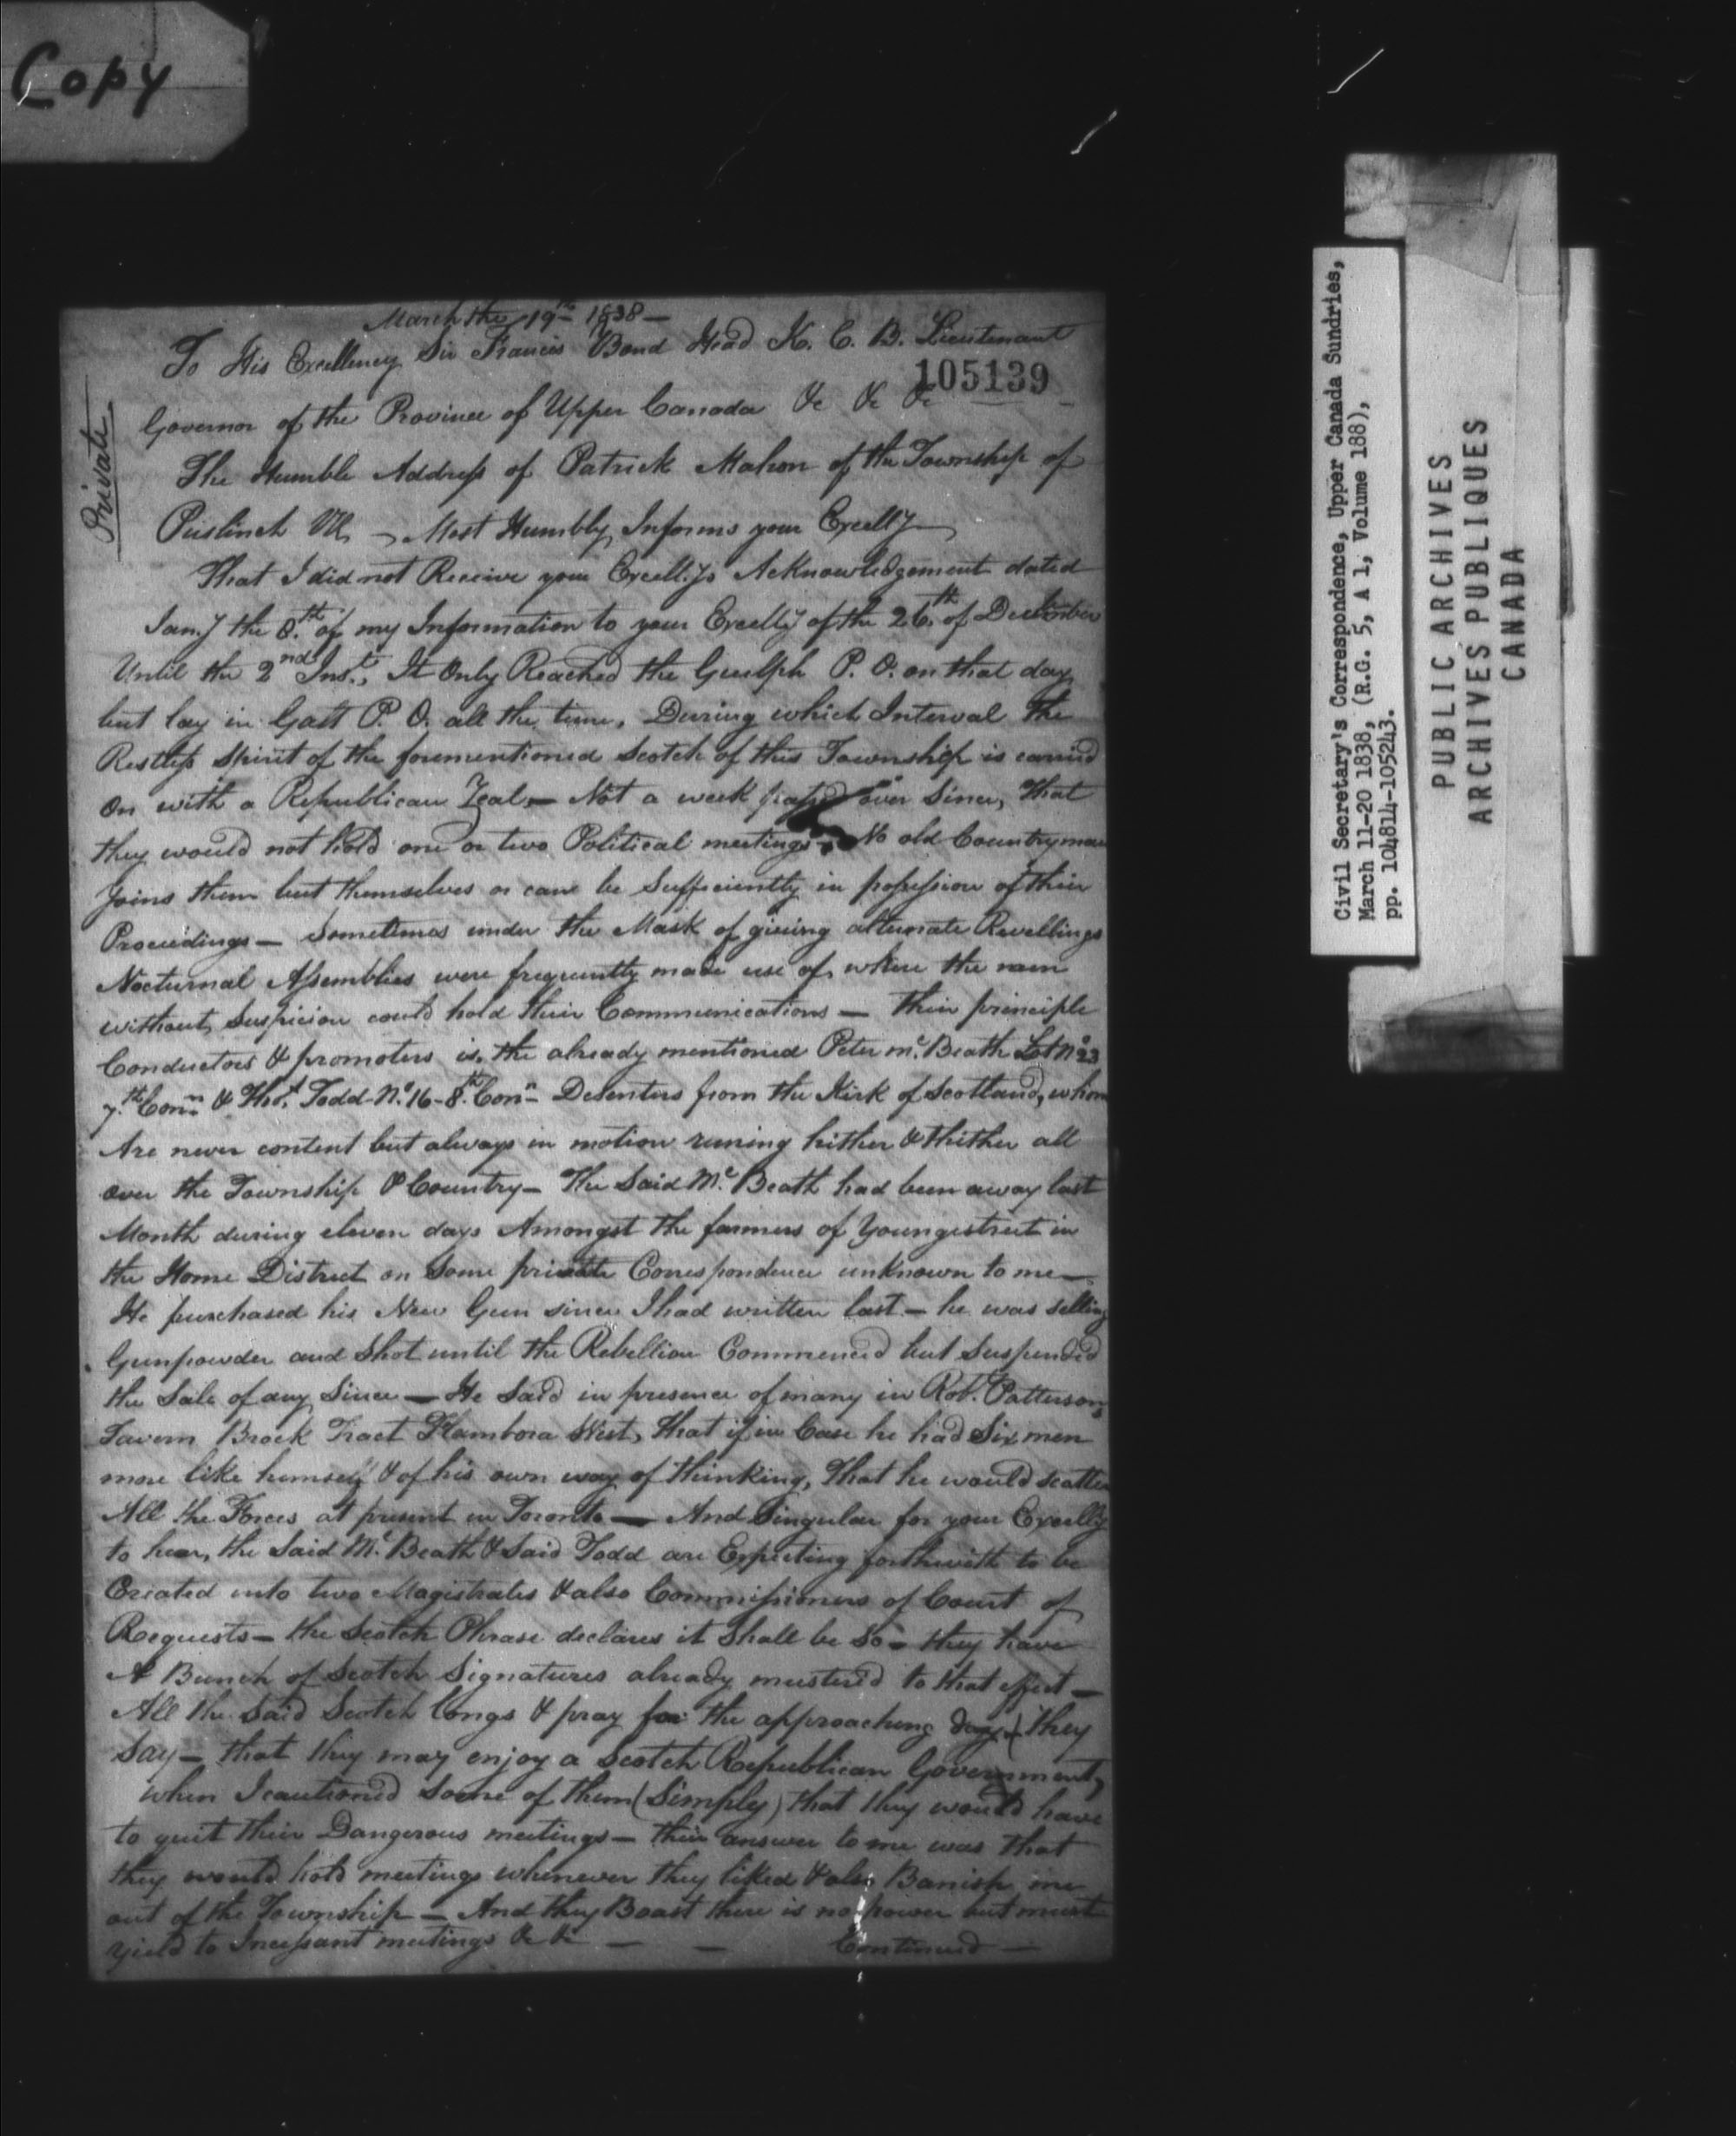 Copy
March the 19th 1838 —
To His Excellency Sir Francis Bond Head K. C. B. Lieutenant
105139
Governor of the Province of Upper Canada &c &c &c
Private
The Humble Address of Patrick Mahon of the Township of
Puslinch — Most Humbly Informs your Excelly —
That I did not Receive your Excell.ys Acknowledgement dated
Jan.y the 8.th of my Information to your Excelly of the 26.th of December
Until the 2nd Inst., It Only Reached the Guelph P. O. on that day
but lay in Galt P. O. all the time, During which Interval the
Restless Spirit of the forementioned Scotch of this Township is carried
On with a Republican Zeal — Not a week passed over Since, That
they would not hold one or two Political meetings — No old Countryman
Joins them but themselves or cane be Sufficiently in possession of their
Proceedings — Sometimes under the Mask of giving alternate Revellings
Nocturnal Assemblies were frequently made use of, where the
without Suspicion could hold their Communications — their principle
Conductors & promoters is, the already mentioned Peter mc. Beath Lot No 23
7.th Conn. & Thos. Todd No. 16 - 8.th Conn — Desenters from the Kirk of Scotland, whom
Are never content but always in motion runing hither & thither all
over the Township & Country — The Said Mc. Beath had been away last
Month during eleven days Amongst the farmers of Youngestreet in
the Home District on Some private Correspondence unknown to me —
He purchased his New Gun since I had written last — he was selling
Gunpowder and Shot until the Rebellion Commenced but Suspended
the Sale of any Since — He Said in presence of many in Robt. Pattersons
Tavern Brock Tract Flambora West, That if in Case he had Six men
more like himself & of his own way of thinking, That he would scatter
All the Forces at present in Toronto — And Singular for your Excelly
to hear, the Said Mc. Beath & Said Todd are Expecting forthwith to be
Created into two Magistrates & also Commissioners of Court of
Requests — the Scotch Phrase declares it Shall be So — they have
A Bunch of Scotch Signatures already musterd to that effect —
All the Said Scotch longs & pray for the approaching day (they
Say — that they may enjoy a Scotch Republican Government,
when I cautioned Some of them (Simply) that they would have
to quit their Dangerous meetings — their answer to me was that
they would hold meetings whenever they liked & also Banish me
out of the Township — And they Boast there is no power but must
yield to Incessant meetings &c &c — — Continued —
Civil Secretary's Correspondence, Upper Canada Sundries,
March 11-20 1838, (R.G. 5, A 1, Volume 188),
pp. 104814-105243.
PUBLIC ARCHIVES
ARCHIVES PUBLIQUES
CANADA